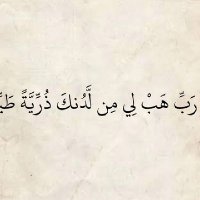 رَبِّ هَبْ لِي مِن لَّدُنكَ ذُرِّيَّةً